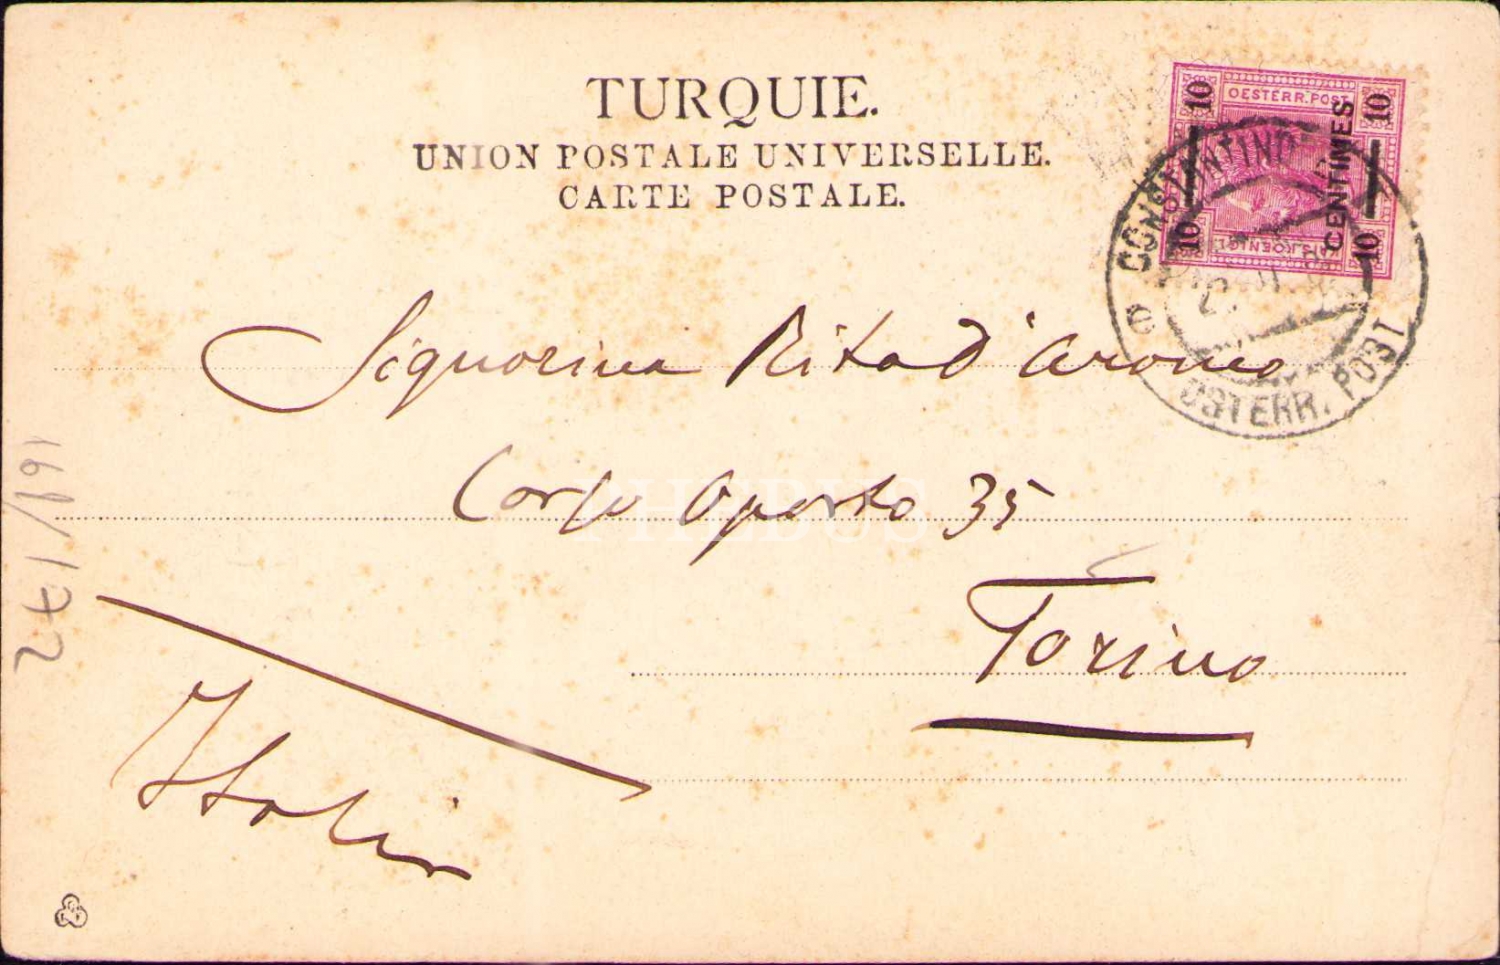 TURQUIE.
UNION POSTALE UNIVERSELLE.
CARTE POSTALE.
10
10
OESTERR. POST
CENTIMES
10
10
CONSTANTINO
ÖSTERR. POST
Signorina Rita d'Aronco
Corso Oporto 35
Torino
Italia
PHEBUS